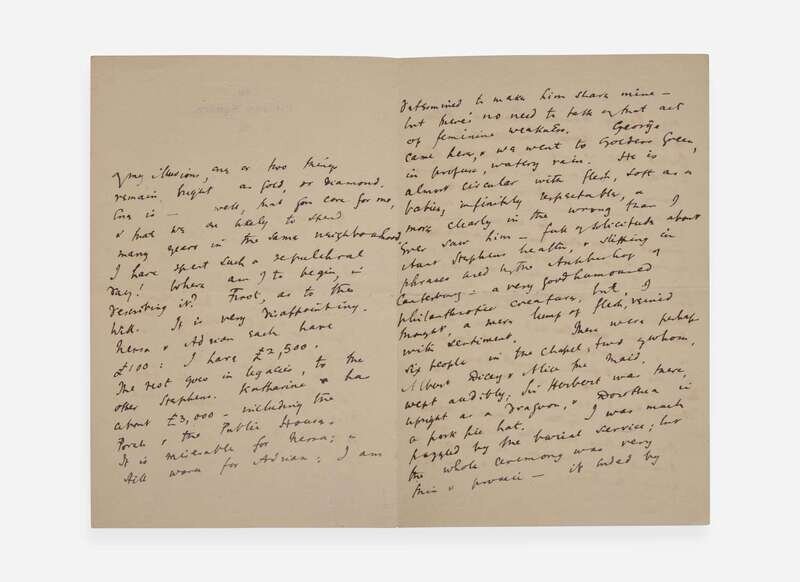 of my illusion, one or two things
remain bright as gold, or diamond.
One is — well, that you care for me,
& that we are likely to spend
many years in the same neighbourhood.
I have spent such a sepulchral
day! Where am I to begin, in
describing it? First, as to the
Will. It is very disappointing.
Nessa & Adrian each have
£100: I have £2,500.
The rest goes in legacies, to the
other Stephens. Katharine has
about £3,000 — including the
Porch & the Public House.
It is miserable for Nessa; &
still worse for Adrian; I am
determined to make him share mine —
but there's no need to talk of that act
of feminine weakness. George
came here, & we went to Golders Green,
in profuse, watery rain. He is
almost circular with flesh, soft as a
babies, infinitely respectable, &
more clearly in the wrong than I
ever saw him — full of solicitude about
Aunt Stephens health, & slipping in
phrases used by the Archbishop of
Canterbury — a very good humoured
philanthropic creature, but, I
thought, a mere lump of flesh, veined
with sentiment. There were perhaps
six people in the chapel; two of whom,
Albert Dicey & Alice the maid,
wept audibly; Sir Herbert was there,
upright as a Dragoon, & Dorothea in
a pork pie hat. I was much
puzzled by the burial service; but
the whole ceremony was very
thin & prosaic — it ended by